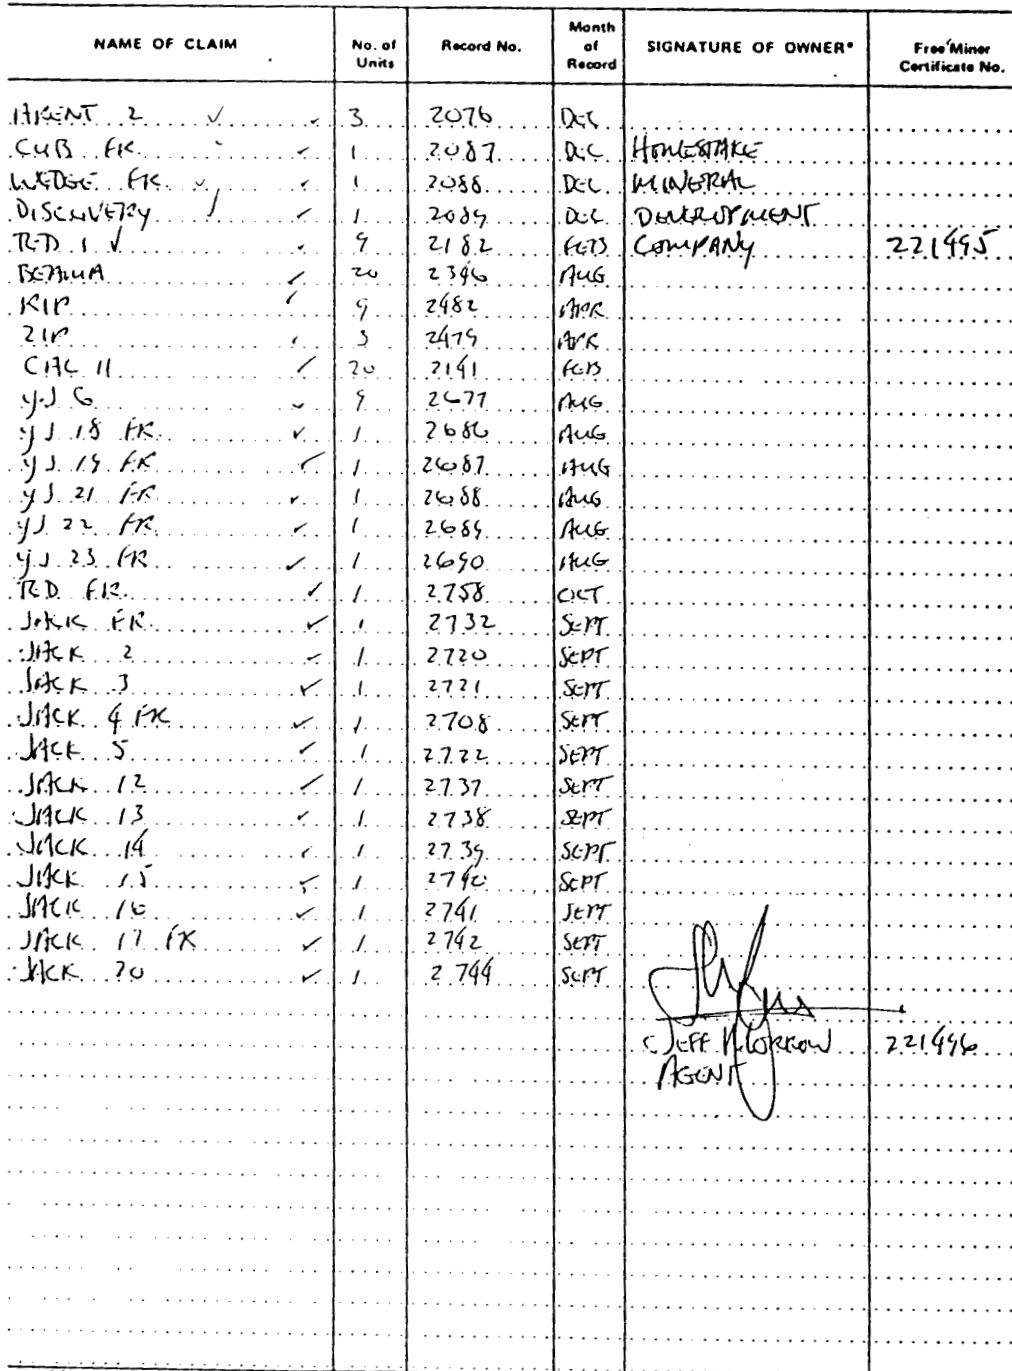 NAME OF CLAIM No. of Units Record No. Month of Record SIGNATURE OF OWNER* Free Miner Certificate No.
2 ✓ ✓ 3 2076 DEC
CUB FR. ✓ 1 2087 DEC HOMESTAKE
WEDGE FR. ✓ ✓ 1 2088 DEC MINERAL
DISCOVERY ✓ ✓ 1 2089 DEC DEVELOPMENT
RED 1 ✓ ✓ 9 2182 FEB COMPANY 221495
✓ 20 2346 AUG
KIP ✓ 9 2482 APR
ZIP ✓ 3 2479 APR
CAC 11 ✓ 20 2141 FEB
YJ 6 ✓ 9 2677 AUG
YJ 18 FR. ✓ 1 2686 AUG
YJ 19 FR ✓ 1 2687 AUG
YJ 21 FR ✓ 1 2688 AUG
YJ 22 FR. ✓ 1 2689 AUG
YJ 23 FR ✓ 1 2690 AUG
RED FR. ✓ 1 2758 OCT
JACK FR. ✓ 1 2732 SEPT
JACK 2 ✓ 1 2720 SEPT
JACK 3 ✓ 1 2721 SEPT
JACK 4 FR ✓ 1 2708 SEPT
JACK 5 ✓ 1 2722 SEPT
JACK 12 ✓ 1 2737 SEPT
JACK 13 ✓ 1 2738 SEPT
JACK 14 ✓ 1 2739 SEPT
JACK 15 ✓ 1 2740 SEPT
JACK 16 ✓ 1 2741 SEPT
JACK 17 FR ✓ 1 2742 SEPT
JACK 20 ✓ 1 2744 SEPT
JEFF MORROW 221496
AGENT